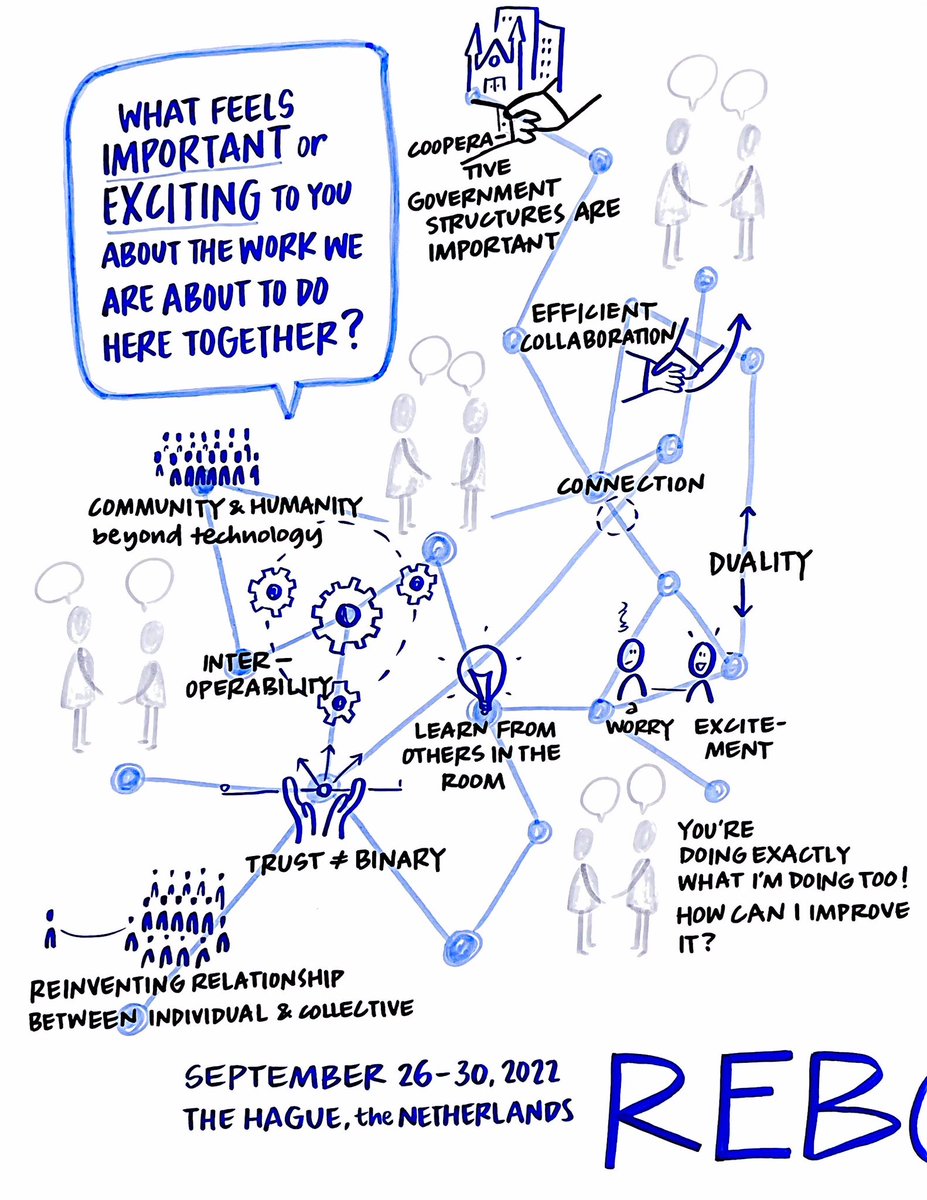 WHAT FEELS
IMPORTANT or
EXCITING TO YOU
ABOUT THE WORK WE
ARE ABOUT TO DO
HERE TOGETHER?
COOPERA-
TIVE
GOVERNMENT
STRUCTURES ARE
IMPORTANT
EFFICIENT
COLLABORATION
CONNECTION
COMMUNITY & HUMANITY
beyond technology
DUALITY
INTER-
OPERABILITY
LEARN FROM
OTHERS IN THE
ROOM
WORRY
EXCITE-
MENT
TRUST ≠ BINARY
YOU'RE
DOING EXACTLY
WHAT I'M DOING TOO!
HOW CAN I IMPROVE
IT?
REINVENTING RELATIONSHIP
BETWEEN INDIVIDUAL & COLLECTIVE
SEPTEMBER 26-30, 2022
THE HAGUE, the NETHERLANDS
REB